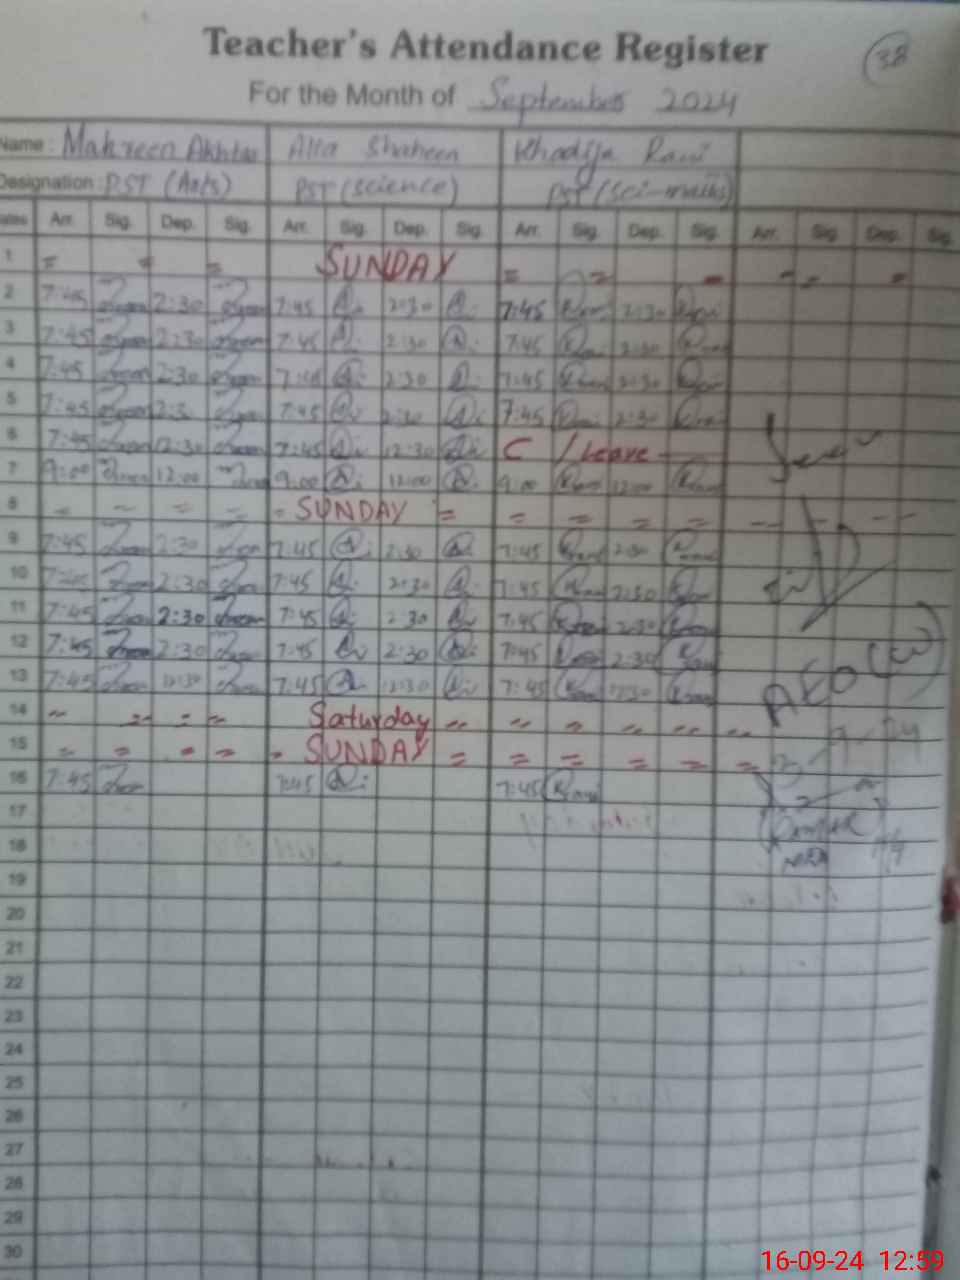 Teacher's Attendance Register
38
For the Month of September 2024
Name: Mahreen Akhtar Alia Shaheen Khadija Rani
Designation: PST (Arts) PST (science) PST (Sci-maths)
Dates Arr. Sig. Dep. Sig. Arr. Sig. Dep. Sig. Arr. Sig. Dep. Sig. Arr. Sig. Dep. Sig.
1 = = = SUNDAY = = = = = =
2 7:45 2:30 7:45 2:30 7:45 2:30
3 7:45 2:30 7:45 2:30 7:45 2:30
4 7:45 2:30 7:45 2:30 7:45 2:30
5 7:45 2:3 7:45 2:30 7:45 2:30
6 7:45 12:30 7:45 12:30 C / Leave
7 9:00 12:00 9:00 12:00 9:00 12:00
8 = = = = = SUNDAY = = = = =
9 7:45 2:30 7:45 2:30 7:45 2:30
10 7:45 2:30 7:45 2:30 7:45 2:30
11 7:45 2:30 7:45 2:30 7:45 2:30
12 7:45 2:30 7:45 2:30 7:45 2:30
13 7:45 12:30 7:45 12:30 7:45 12:30
AEO (W)
14 = = = = Saturday = = = = = =
15 = = = = = SUNDAY = = = = = =
16 7:45 7:45 7:45
17
18
19
20
21
22
23
24
25
26
27
28
29
30
16-09-24 12:59